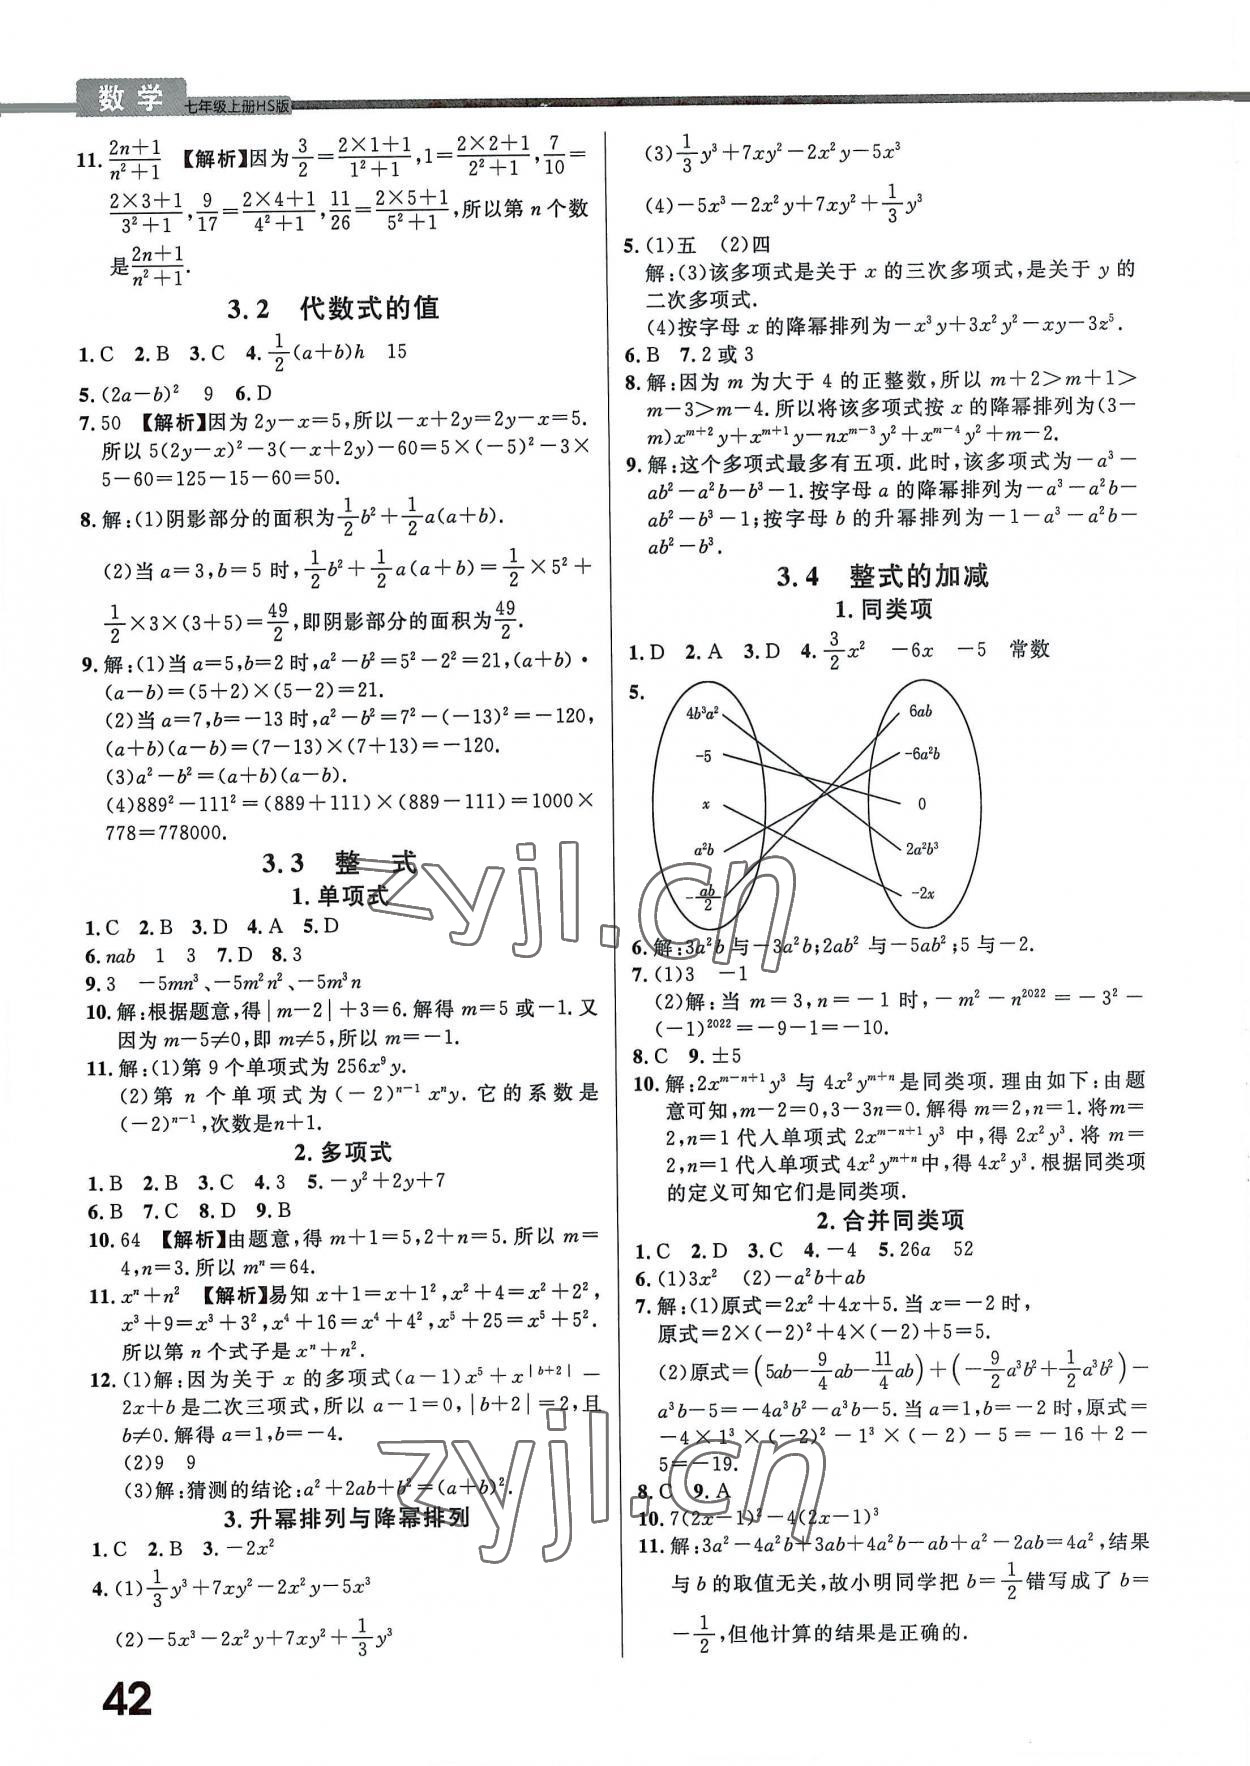 数学
七年级上册HS版
11. \frac{2n+1}{n²+1} 【解析】因为\frac{3}{2}=\frac{2×1+1}{1²+1},1=\frac{2×2+1}{2²+1},\frac{7}{10}=
\frac{2×3+1}{3²+1},\frac{9}{17}=\frac{2×4+1}{4²+1},\frac{11}{26}=\frac{2×5+1}{5²+1},所以第 n 个数
是\frac{2n+1}{n²+1}.
3.2 代数式的值
1.C 2.B 3.C 4.\frac{1}{2}(a+b)h 15
5.(2a-b)² 9 6.D
7.50 【解析】因为 2y-x=5,所以-x+2y=2y-x=5.
所以 5(2y-x)²-3(-x+2y)-60=5×(-5)²-3×
5-60=125-15-60=50.
8.解:(1)阴影部分的面积为\frac{1}{2}b²+\frac{1}{2}a(a+b).
(2)当 a=3,b=5 时,\frac{1}{2}b²+\frac{1}{2}a(a+b)=\frac{1}{2}×5²+
\frac{1}{2}×3×(3+5)=\frac{49}{2},即阴影部分的面积为\frac{49}{2}.
9.解:(1)当 a=5,b=2 时,a²-b²=5²-2²=21,(a+b)·
(a-b)=(5+2)×(5-2)=21.
(2)当 a=7,b=-13 时,a²-b²=7²-(-13)²=-120,
(a+b)(a-b)=(7-13)×(7+13)=-120.
(3)a²-b²=(a+b)(a-b).
(4)889²-111²=(889+111)×(889-111)=1000×
778=778000.
3.3 整 式
1.单项式
1.C 2.B 3.D 4.A 5.D
6.nab 1 3 7.D 8.3
9.3 -5mn³、-5m²n²、-5m³n
10.解:根据题意,得|m-2|+3=6.解得 m=5 或-1.又
因为 m-5≠0,即 m≠5,所以 m=-1.
11.解:(1)第 9 个单项式为 256x⁹y.
(2)第 n 个单项式为(-2)ⁿ⁻¹xⁿy.它的系数是
(-2)ⁿ⁻¹,次数是n+1.
2.多项式
1.B 2.B 3.C 4.3 5.-y²+2y+7
6.B 7.C 8.D 9.B
10.64 【解析】由题意,得 m+1=5,2+n=5.所以 m=
4,n=3.所以 mⁿ=64.
11.xⁿ+n² 【解析】易知 x+1=x+1²,x²+4=x²+2²,
x³+9=x³+3²,x⁴+16=x⁴+4²,x⁵+25=x⁵+5².
所以第 n 个式子是 xⁿ+n².
12.(1)解:因为关于 x 的多项式(a-1)x⁵+x^{|b+2|}-
2x+b 是二次三项式,所以 a-1=0,|b+2|=2,且
b≠0.解得 a=1,b=-4.
(2)9 9
(3)解:猜测的结论:a²+2ab+b²=(a+b)².
3.升幂排列与降幂排列
1.C 2.B 3.-2x²
4.(1)\frac{1}{3}y³+7xy²-2x²y-5x³
(2)-5x³-2x²y+7xy²+\frac{1}{3}y³
42
(3)\frac{1}{3}y³+7xy²-2x²y-5x³
(4)-5x³-2x²y+7xy²+\frac{1}{3}y³
5.(1)五 (2)四
解:(3)该多项式是关于 x 的三次多项式,是关于 y 的
二次多项式.
(4)按字母 x 的降幂排列为-x³y+3x²y²-xy-3z⁵.
6.B 7.2 或 3
8.解:因为 m 为大于 4 的正整数,所以 m+2>m+1>
m-3>m-4.所以将该多项式按 x 的降幂排列为(3-
m)x^{m+2}y+x^{m+1}y-nx^{m-3}y²+x^{m-4}y²+m-2.
9.解:这个多项式最多有五项.此时,该多项式为-a³-
ab²-a²b-b³-1.按字母 a 的降幂排列为-a³-a²b-
ab²-b³-1;按字母 b 的升幂排列为-1-a³-a²b-
ab²-b³.
3.4 整式的加减
1.同类项
1.D 2.A 3.D 4.\frac{3}{2}x² -6x -5 常数
5.
4b³a² 6ab
-5 -6a²b
x 0
a²b 2a²b³
-\frac{ab}{2} -2x
6.解:3a²b 与-3a²b;2ab² 与-5ab²;5 与-2.
7.(1)3 -1
(2)解:当 m=3,n=-1 时,-m²-n²⁰²²=-3²-
(-1)²⁰²²=-9-1=-10.
8.C 9.±5
10.解:2x^{m-n+1}y³ 与 4x²y^{m+n}是同类项.理由如下:由题
意可知,m-2=0,3-3n=0.解得 m=2,n=1.将m=
2,n=1 代入单项式 2x^{m-n+1}y³ 中,得 2x²y³.将 m=
2,n=1 代入单项式 4x²y^{m+n}中,得 4x²y³.根据同类项
的定义可知它们是同类项.
2.合并同类项
1.C 2.D 3.C 4.-4 5.26a 52
6.(1)3x² (2)-a²b+ab
7.解:(1)原式=2x²+4x+5.当 x=-2 时,
原式=2×(-2)²+4×(-2)+5=5.
(2)原式=(5ab-\frac{9}{4}ab-\frac{11}{4}ab)+(-\frac{9}{2}a³b²+\frac{1}{2}a³b²)-
a³b-5=-4a³b²-a³b-5.当 a=1,b=-2 时,原式=
-4×1³×(-2)²-1³×(-2)-5=-16+2-
5=-19.
8.C 9.A
10.7(2x-1)²-4(2x-1)³
11.解:3a²-4a²b+3ab+4a²b-ab+a²-2ab=4a²,结果
与 b 的取值无关,故小明同学把 b=\frac{1}{2}错写成了 b=
-\frac{1}{2},但他计算的结果是正确的.
zyjl.cn
zyjl.cn